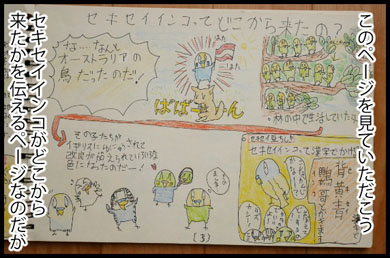 このページを見ていただこう
セキセイインコってどこから来たの？
な…なんと
オーストラリアの
鳥だったのだ！
ばばーん
林の中で生活していたよ
その鳥たちが
イギリスに
改良が加えられていろいろな
色になったのだー！
セキセイインコって漢字でかけ
背黄青
鸚哥
(3)
セキセイインコがどこから
来たかを伝えるページなのだが